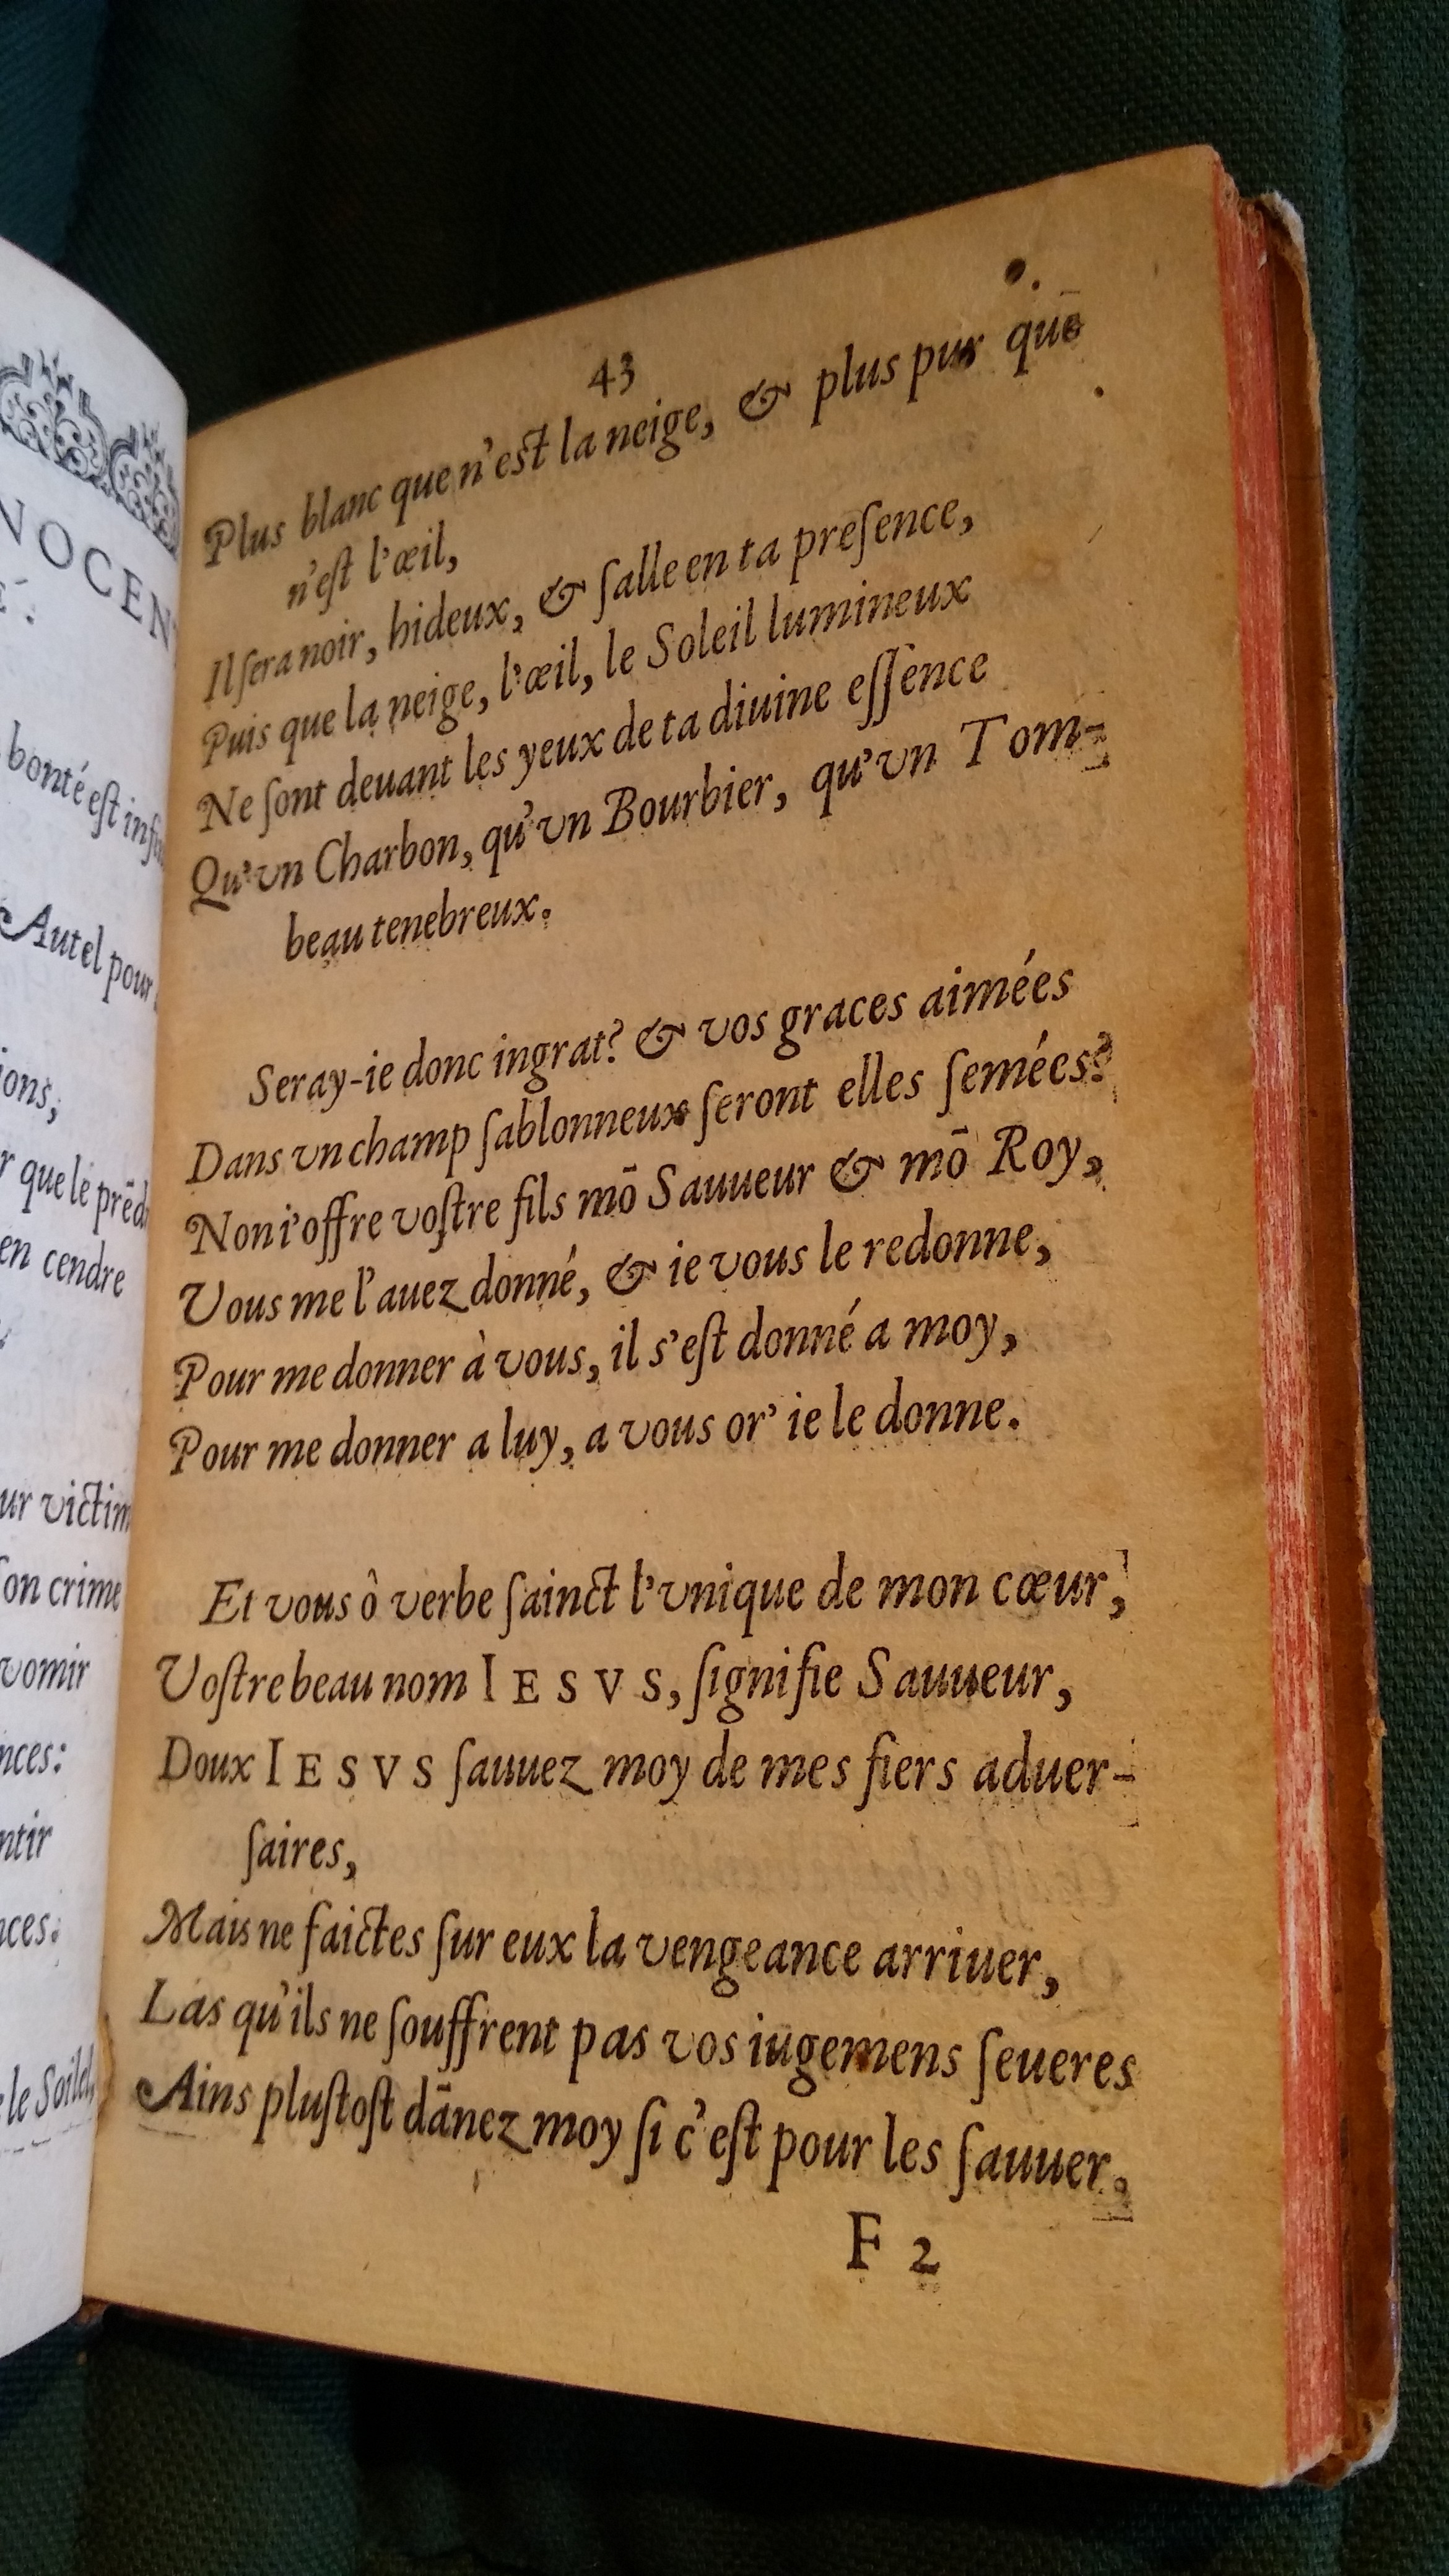 NOCEN
bonté est infi
Autel pour
ions,
r que le prēd
en cendre
ur victim
ſon crime
vomir
nces:
ntir
nces.
le Soileil,
43
Plus blanc que n'eſt la neige, & plus pur que
n'eſt l'œil,
Il ſera noir, hideux, & ſalle en ta preſence,
Puis que la neige, l'œil, le Soleil lumineux
Ne ſont deuant les yeux de ta diuine eſſence
Qu'vn Charbon, qu'vn Bourbier, qu'vn Tom-
beau tenebreux.
Seray-ie donc ingrat? & vos graces aimées
Dans vn champ ſablonneux ſeront elles ſemées?
Non i'offre voſtre fils mō Sauueur & mō Roy,
Vous me l'auez donné, & ie vous le redonne,
Pour me donner à vous, il s'eſt donné a moy,
Pour me donner a luy, a vous or' ie le donne.
Et vous ô verbe ſainct l'vnique de mon cœur,
Voſtre beau nom IESVS, ſignifie Sauueur,
Doux IESVS ſauuez moy de mes fiers aduer-
ſaires,
Mais ne faictes ſur eux la vengeance arriuer,
Las qu'ils ne ſouffrent pas vos iugemens ſeueres
Ains pluſtoſt dānez moy ſi c'eſt pour les ſauuer.
F 2